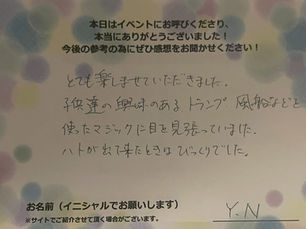 本日はイベントにお呼びくださり、
本当にありがとうございました！
今後の参考の為にぜひ感想をお聞かせください！
とても楽しませていただきました。
子供達の興味のあるトランプ 風船などを
使ったマジックに目を見張っていました。
ハトが出て来たときはびっくりでした。
お名前（イニシャルでお願いします）
Y.N
※サイトでご紹介させて頂く場合がございます。